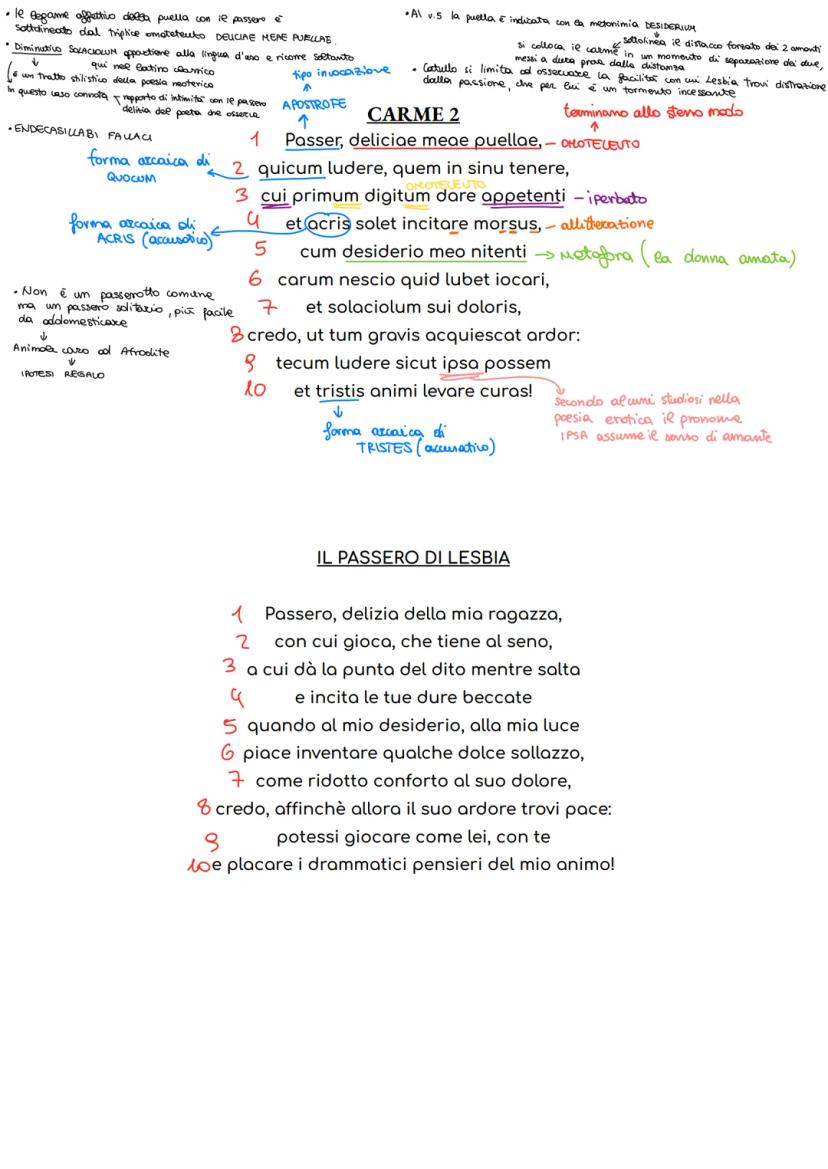 • Il legame affettivo della puella con il passero è
sottolineato dal triplice omoteleuto DELICIAE MEAE PUELLAE.
• Diminutivo SOLACIOLUM appartiene alla lingua d'uso e ricorre soltanto
qui nel latino classico
è un tratto stilistico della poesia neoterica
In questo caso connota rapporto di intimità con il passero
delizia del poeta che osserva
• ENDECASILLABI FALECI
• Al v.5 la puella è indicata con la metonimia DESIDERIUM
sottolinea il distacco forzato dei 2 amanti
si colloca il carme in un momento di separazione dei due,
messi a dura prova dalla distanza
• Catullo si limita ad osservare la facilità con cui Lesbia trovi distrazione
dalla passione, che per lui è un tormento incessante
tipo invocazione
APOSTROFE
CARME 2
terminano allo stesso modo
1 Passer, deliciae meae puellae, – OMOTELEUTO
forma arcaica di
QUOCUM
2 quicum ludere, quem in sinu tenere,
OMOTELEUTO
3 cui primum digitum dare appetenti – iperbato
forma arcaica di
ACRIS (accusativo)
4 et acris solet incitare morsus, – allitterazione
5 cum desiderio meo nitenti → metafora (la donna amata)
6 carum nescio quid lubet iocari,
• Non è un passerotto comune
ma un passero solitario, più facile
da addomesticare
Animale caro ad Afrodite
IPOTESI REGALO
7 et solaciolum sui doloris,
8 credo, ut tum gravis acquiescat ardor:
9 tecum ludere sicut ipsa possem
10 et tristis animi levare curas!
forma arcaica di
TRISTES (accusativo)
secondo alcuni studiosi nella
poesia erotica il pronome
IPSA assume il senso di amante
IL PASSERO DI LESBIA
1 Passero, delizia della mia ragazza,
2 con cui gioca, che tiene al seno,
3 a cui dà la punta del dito mentre salta
4 e incita le tue dure beccate
5 quando al mio desiderio, alla mia luce
6 piace inventare qualche dolce sollazzo,
7 come ridotto conforto al suo dolore,
8 credo, affinchè allora il suo ardore trovi pace:
9 potessi giocare come lei, con te
10 e placare i drammatici pensieri del mio animo!